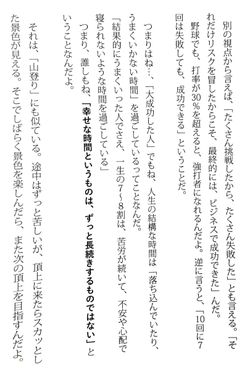 別の視点から言えば、「たくさん挑戦したから、たくさん失敗した」とも言える。「そ
れだけリスクを冒したからこそ、最終的には、ビジネスで成功できた」んだ。
野球でも、打率が30％を超えると、強打者になれるんだよ。逆に言うと、「10回に7
回は失敗しても、成功できる」ということだ。
つまりはね…、「大成功した人」でもね、人生の結構な時間は「落ち込んでいたり、
うまくいかない時間」を過ごしているってことなんだ。
「結果的にうまくいった人でさえ、一生の7～8割は、苦労が続いて、不安や心配で
寝られないような時間を過ごしている」
ということなんだよ。
つまり、誰しもね、「幸せな時間というものは、ずっと長続きするものではない」と
いうことなんだよ。
それは、「山登り」にも似ている。途中はずっと苦しいが、頂上に来たらスカッとし
た景色が見える。そこでしばらく景色を楽しんだら、また次の頂上を目指すんだよ。